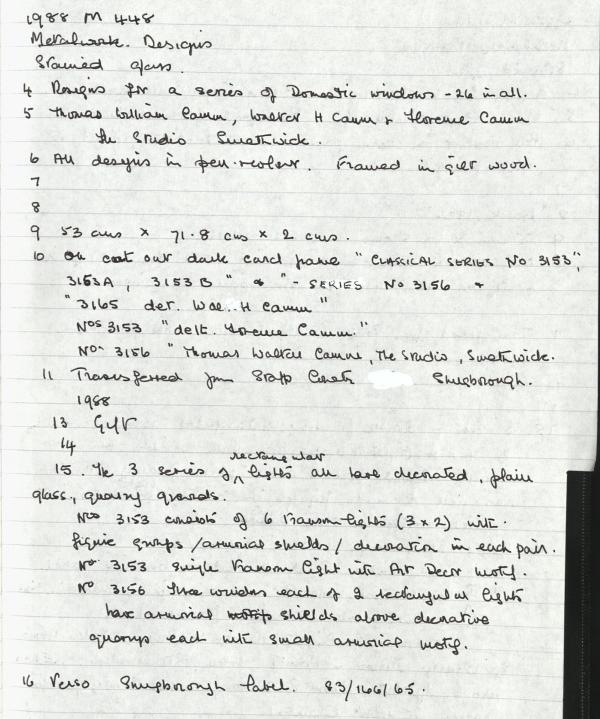 1988 M 448
Metalwork. Designs
Stained glass.
4 Designs for a series of Domestic windows - 26 in all.
5 Thomas William Camm, Walter H Camm + Florence Camm
The Studio Smethwick.
6 All designs in pen + colour. Framed in gilt wood.
7
8
9 53 cms x 71.8 cms x 2 cms.
10 On cut out dark card frame "CLASSICAL SERIES No 3153",
3153A, 3153B " & " - SERIES No 3156 +
"3165 del. Wal.. H Camm"
Nos 3153 "delt. Florence Camm."
No. 3156 "Thomas Walter Camm, The Studio, Smethwick.
11 Transferred from Staff County Shugborough.
1988
13 Gift
14
15. The 3 series of rectangular lights all have decorated, plain
glass, quarry grounds.
Nos 3153 consists of 6 transom lights (3 x 2) with
figure groups / armorial shields / decoration in each pair.
No 3153 single transom light with Art Deco motif.
No 3156 three windows each of 2 rectangular lights
have armorial shields above decorative
quarries each with small armorial motif.
16 Verso Shugborough label. 83/166/65.